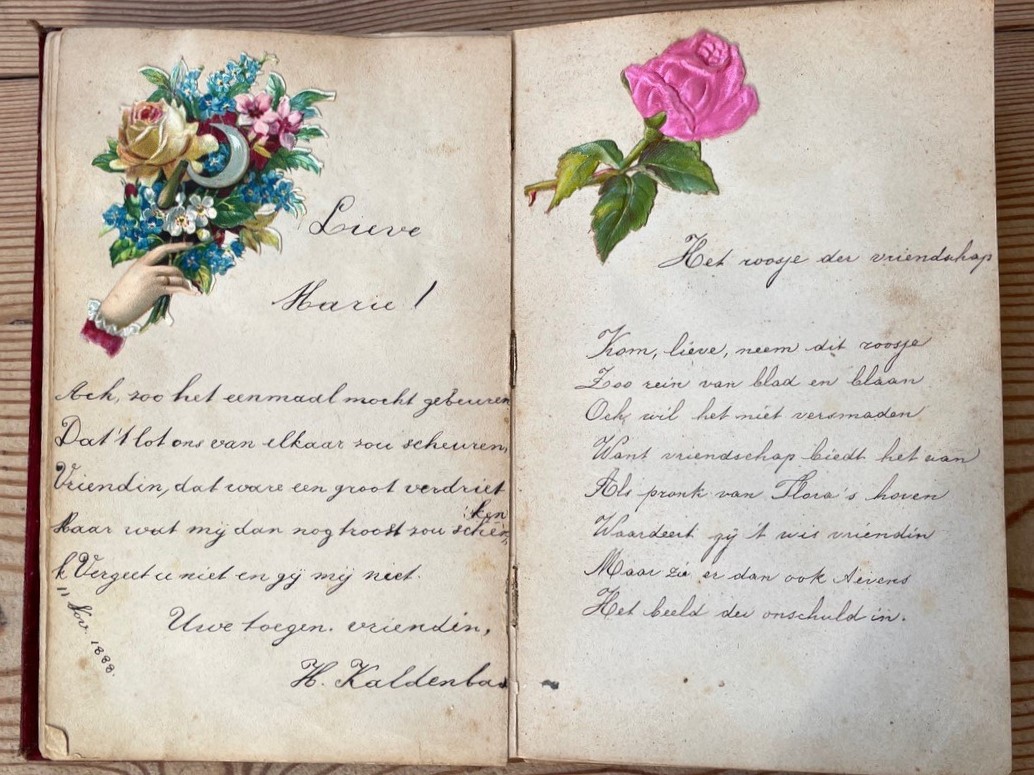 Lieve
Marie!
Ach, zoo het eenmaal mocht gebeuren
Dat 't lot ons van elkaar zou scheuren,
Vriendin, dat ware een groot verdriet
Maar wat mij dan nog troost zou schen
ken
k Vergeet u niet en gij mij niet.
11 Nov. 1888.
Uwe toegen. vriendin,
H. Kaldenba
Het roosje der vriendschap
Kom, lieve, neem dit roosje
Zoo rein van blad en blaan
Och wil het niet versmaden
Want vriendschap biedt het aan
Als pronk van Flora's hoven
Waardeert gij 't wis vriendin
Maar zie er dan ook tevens
Het beeld der onschuld in.